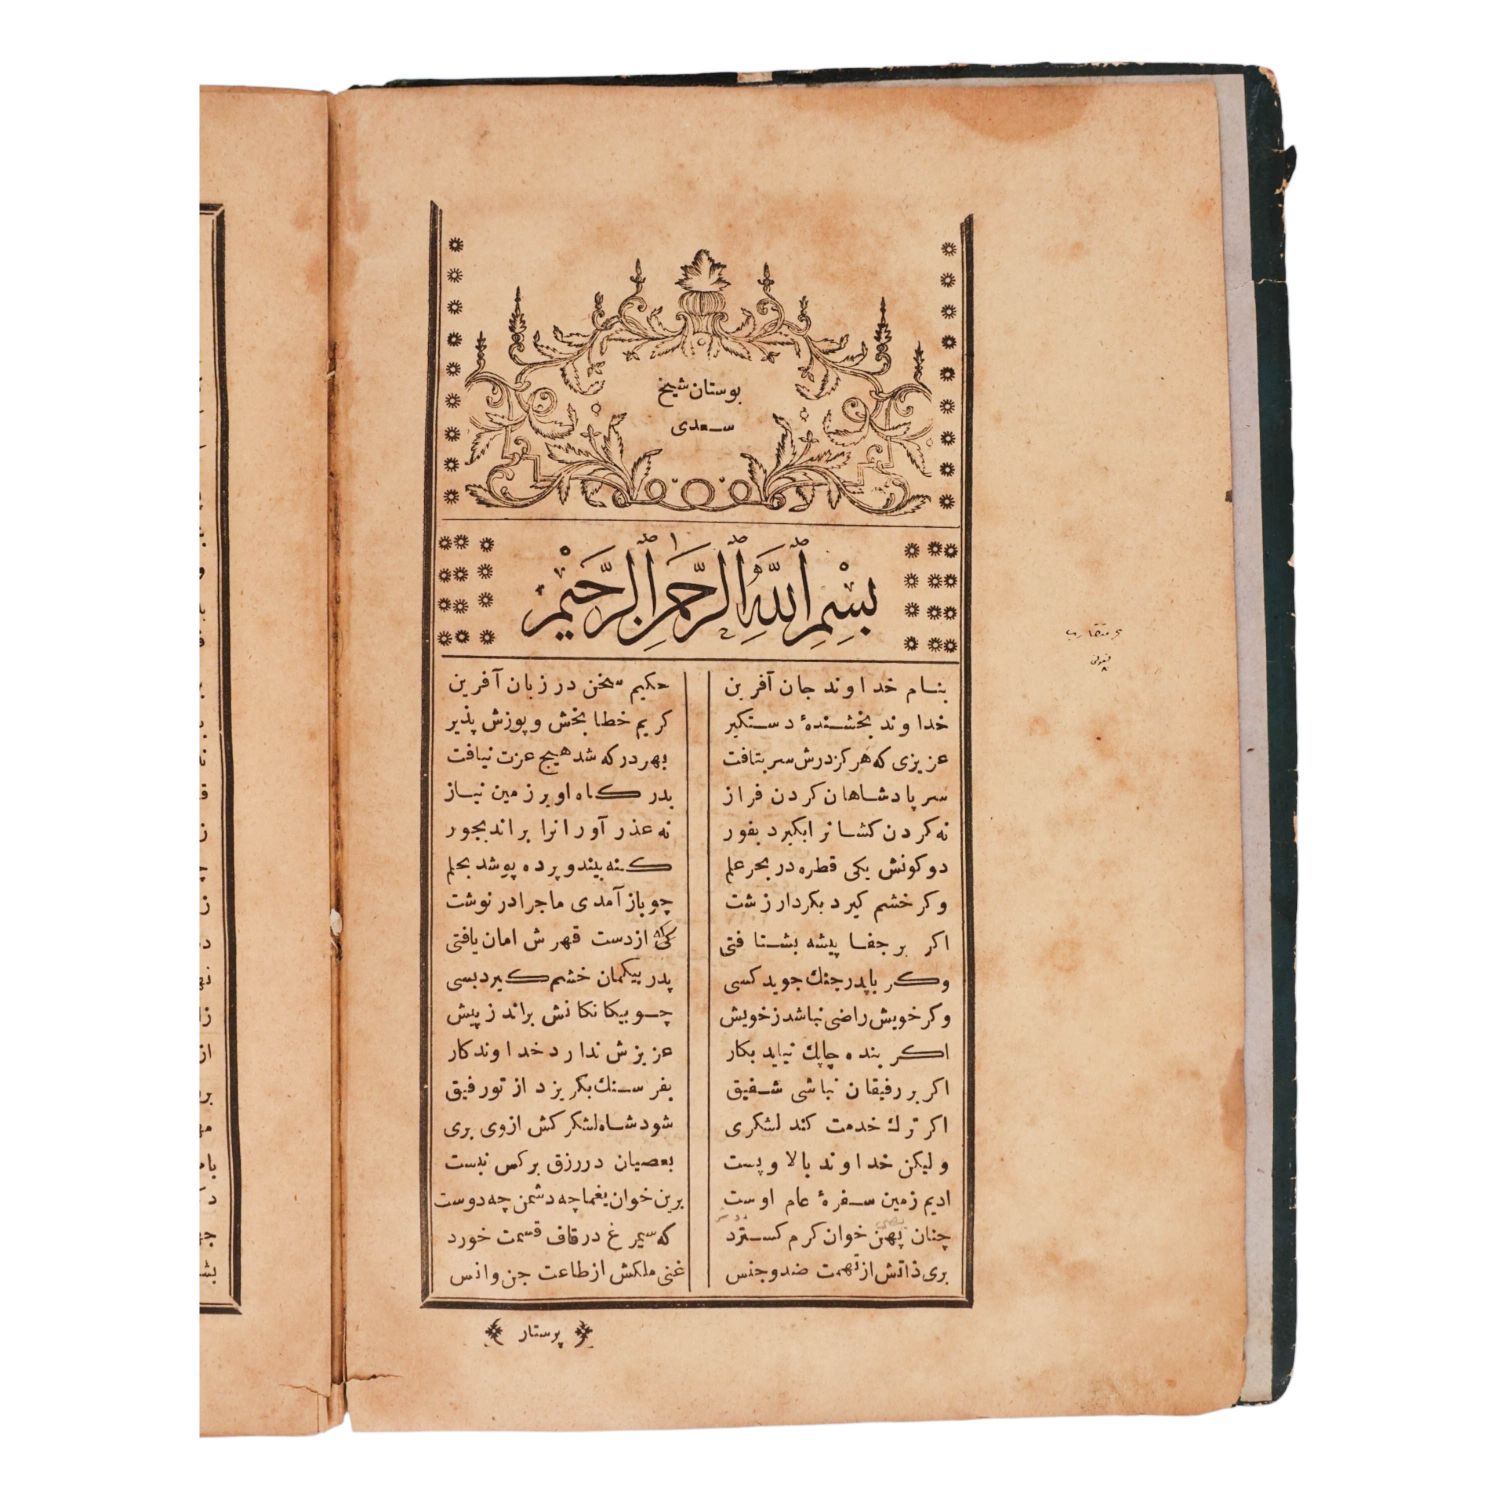 بوستان شیخ
سعدی
بِسْمِ اللَّهِ الرَّحْمَنِ الرَّحِيمِ
بنام خداوند جان آفرین حکیم سخن در زبان آفرین
خداوند بخشندهٔ دستکیر کریم خطا بخش و پوزش پذیر
عزیزی که هر کز درش سر بتافت بهر در که شد هیچ عزت نیافت
سر پادشاهان کردن فراز بدر کاه او بر زمین نیاز
نه کردن کشانرا بکیرد بفور نه عذر آورانرا براند بجور
دو کونش یکی قطره در بحر علم کنه بیند و پرده پوشد بحلم
وکر خشم کیرد بکردار زشت چو باز آمدی ماجرا در نوشت
اکر بر جفا پیشه بشتافتی کی از دست قهرش امان یافتی
وکر با پدر جنك جوید کسی پدر بیکمان خشم کیرد بسی
وکر خویش راضی نباشد ز خویش چو بیکانکانش براند ز پیش
اکر بنده چابك نیاید بکار عزیزش ندارد خداوندکار
اکر بر رفیقان نباشی شفیق بفرسنك بکریزد از تو رفیق
اکر ترك خدمت کند لشکری شود شاه لشکر کش از وی بری
ولیکن خداوند بالا و پست بعصیان در رزق بر کس نبست
ادیم زمین سفرهٔ عام اوست برین خوان یغما چه دشمن چه دوست
چنان پهن خوان کرم کسترد که سیمرغ در قاف قسمت خورد
بری ذاتش از تهمت ضد و جنس غنی ملکش از طاعت جن و انس
پرستار
بحر متقارب